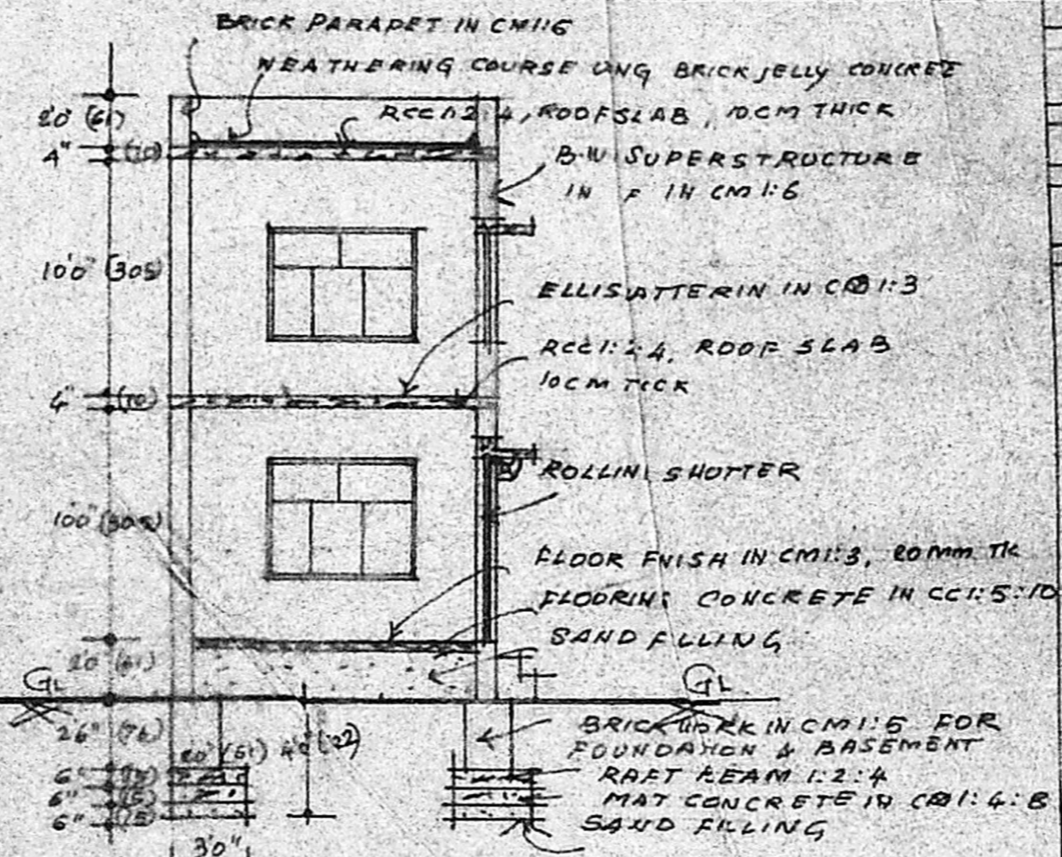 BRICK PARAPET IN CM1:6
WEATHERING COURSE UNG BRICK JELLY CONCRETE
RCC 1:2:4, ROOF SLAB, 10CM THICK
B.W SUPERSTRUCTURE
IN F IN CM 1:6
ELLISATTERIN IN CM 1:3
RCC1:2:4, ROOF SLAB
10CM TICK
ROLLIN SHOTTER
FLOOR FNISH IN CM1:3, 20MM TK
FLOORIN: CONCRETE IN CC1:5:10
SAND FLLING
GL
GL
BRICK WORK IN CM1:5 FOR
FOUNDATION & BASEMENT
RAFT BEAM 1:2:4
MAT CONCRETE IN CM 1:4:8
SAND FILLING
2'0" (61)
4" (10)
10'0" (305)
4" (10)
10'0" (305)
2'0 (61)
2'6" (76)
2'0" (61)
4'0" (122)
6" (15)
6" (15)
6" (15)
3'0"